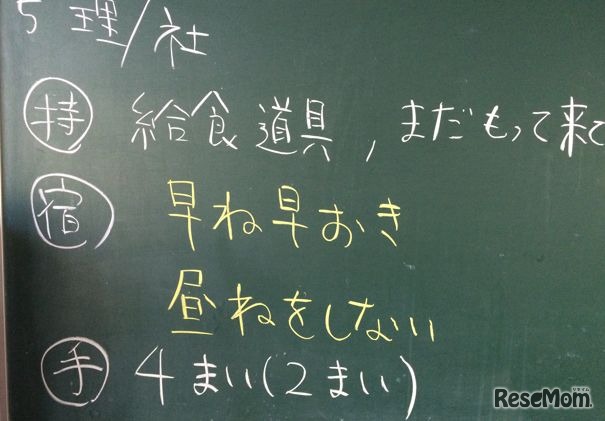 5 理/社
持 給食道具,まだもって来て
宿 早ね早おき
昼ねをしない
手 4まい(2まい)
リセマム
ReseMom